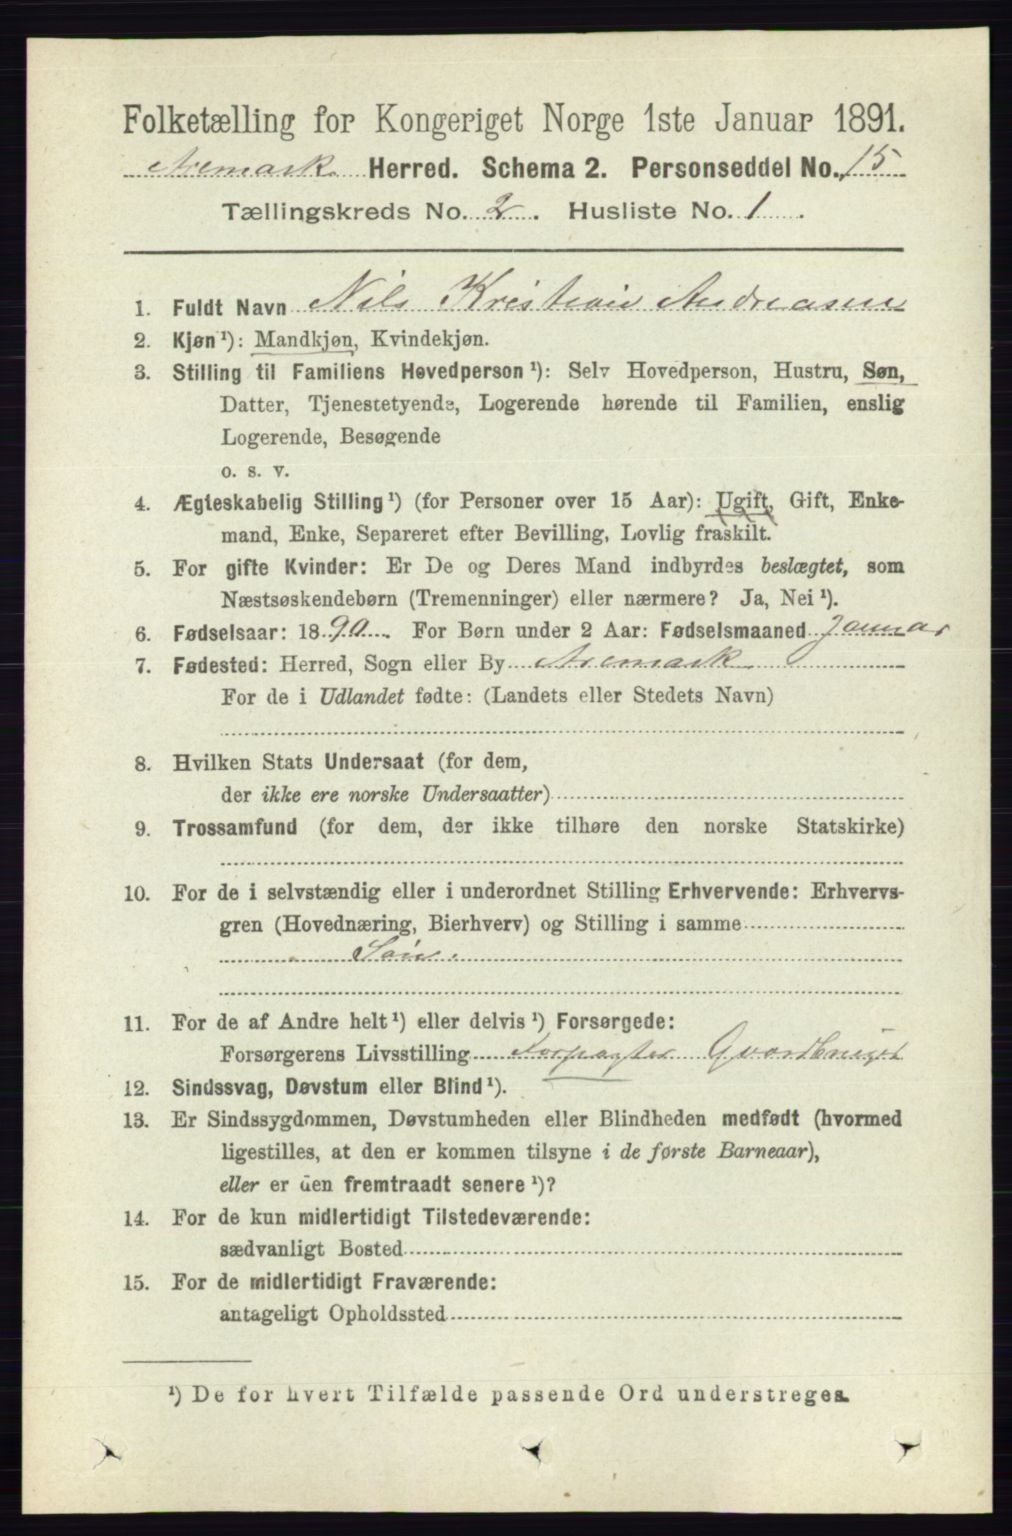 Folketælling for Kongeriget Norge 1ste Januar 1891.
Aremark Herred. Schema 2. Personseddel No. 15
Tællingskreds No. 2. Husliste No. 1.
1. Fuldt Navn Nils Kristian Andreasen
2. Kjøn ¹): Mandkjøn, Kvindekjøn.
3. Stilling til Familiens Hovedperson ¹): Selv Hovedperson, Hustru, Søn,
Datter, Tjenestetyende, Logerende hørende til Familien, enslig
Logerende, Besøgende
o. s. v.
4. Ægteskabelig Stilling ¹) (for Personer over 15 Aar): Ugift, Gift, Enke-
mand, Enke, Separeret efter Bevilling, Lovlig fraskilt.
5. For gifte Kvinder: Er De og Deres Mand indbyrdes beslægtet, som
Næstsøskendebørn (Tremenninger) eller nærmere? Ja, Nei ¹).
6. Fødselsaar: 1890. For Børn under 2 Aar: Fødselsmaaned Januar
7. Fødested: Herred, Sogn eller By Aremark
For de i Udlandet fødte: (Landets eller Stedets Navn)
8. Hvilken Stats Undersaat (for dem,
der ikke ere norske Undersaatter)
9. Trossamfund (for dem, der ikke tilhøre den norske Statskirke)
10. For de i selvstændig eller i underordnet Stilling Erhvervende: Erhvervs-
gren (Hovednæring, Bierhverv) og Stilling i samme
Søn.
11. For de af Andre helt ¹) eller delvis ¹) Forsørgede:
Forsørgerens Livsstilling Forpagter Gaardbruger
12. Sindssvag, Døvstum eller Blind ¹).
13. Er Sindssygdommen, Døvstumheden eller Blindheden medfødt (hvormed
ligestilles, at den er kommen tilsyne i de første Barneaar),
eller er den fremtraadt senere ¹)?
14. For de kun midlertidigt Tilstedeværende:
sædvanligt Bosted
15. For de midlertidigt Fraværende:
antageligt Opholdssted
¹) De for hvert Tilfælde passende Ord understreges.